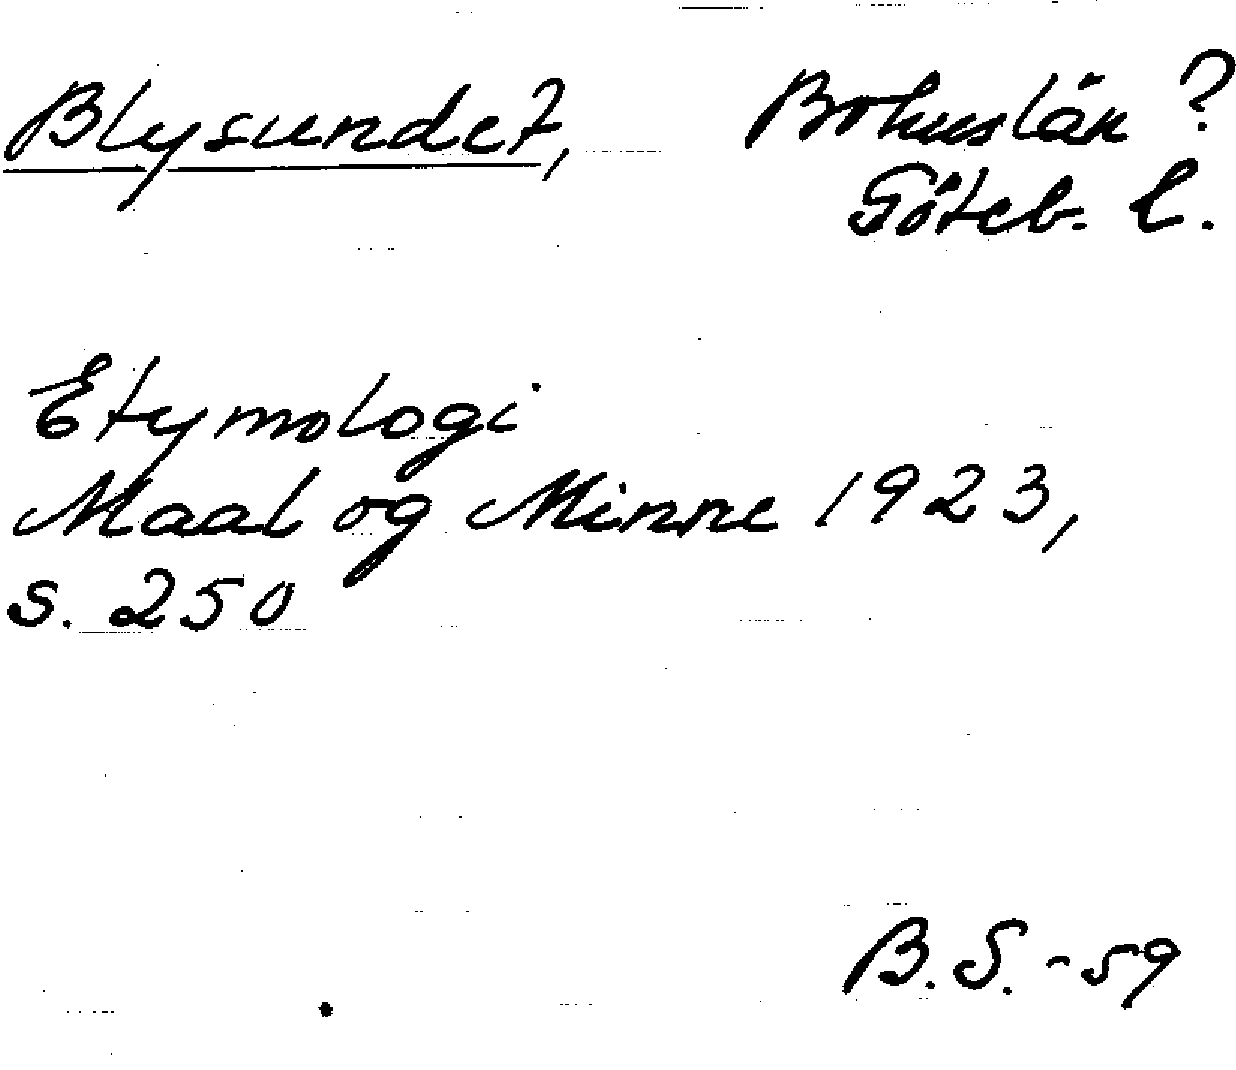 Blysundet, Bohuslän ?
Göteb. l.
Etymologi
Maal og Minne 1923,
s. 250
B.S.-59